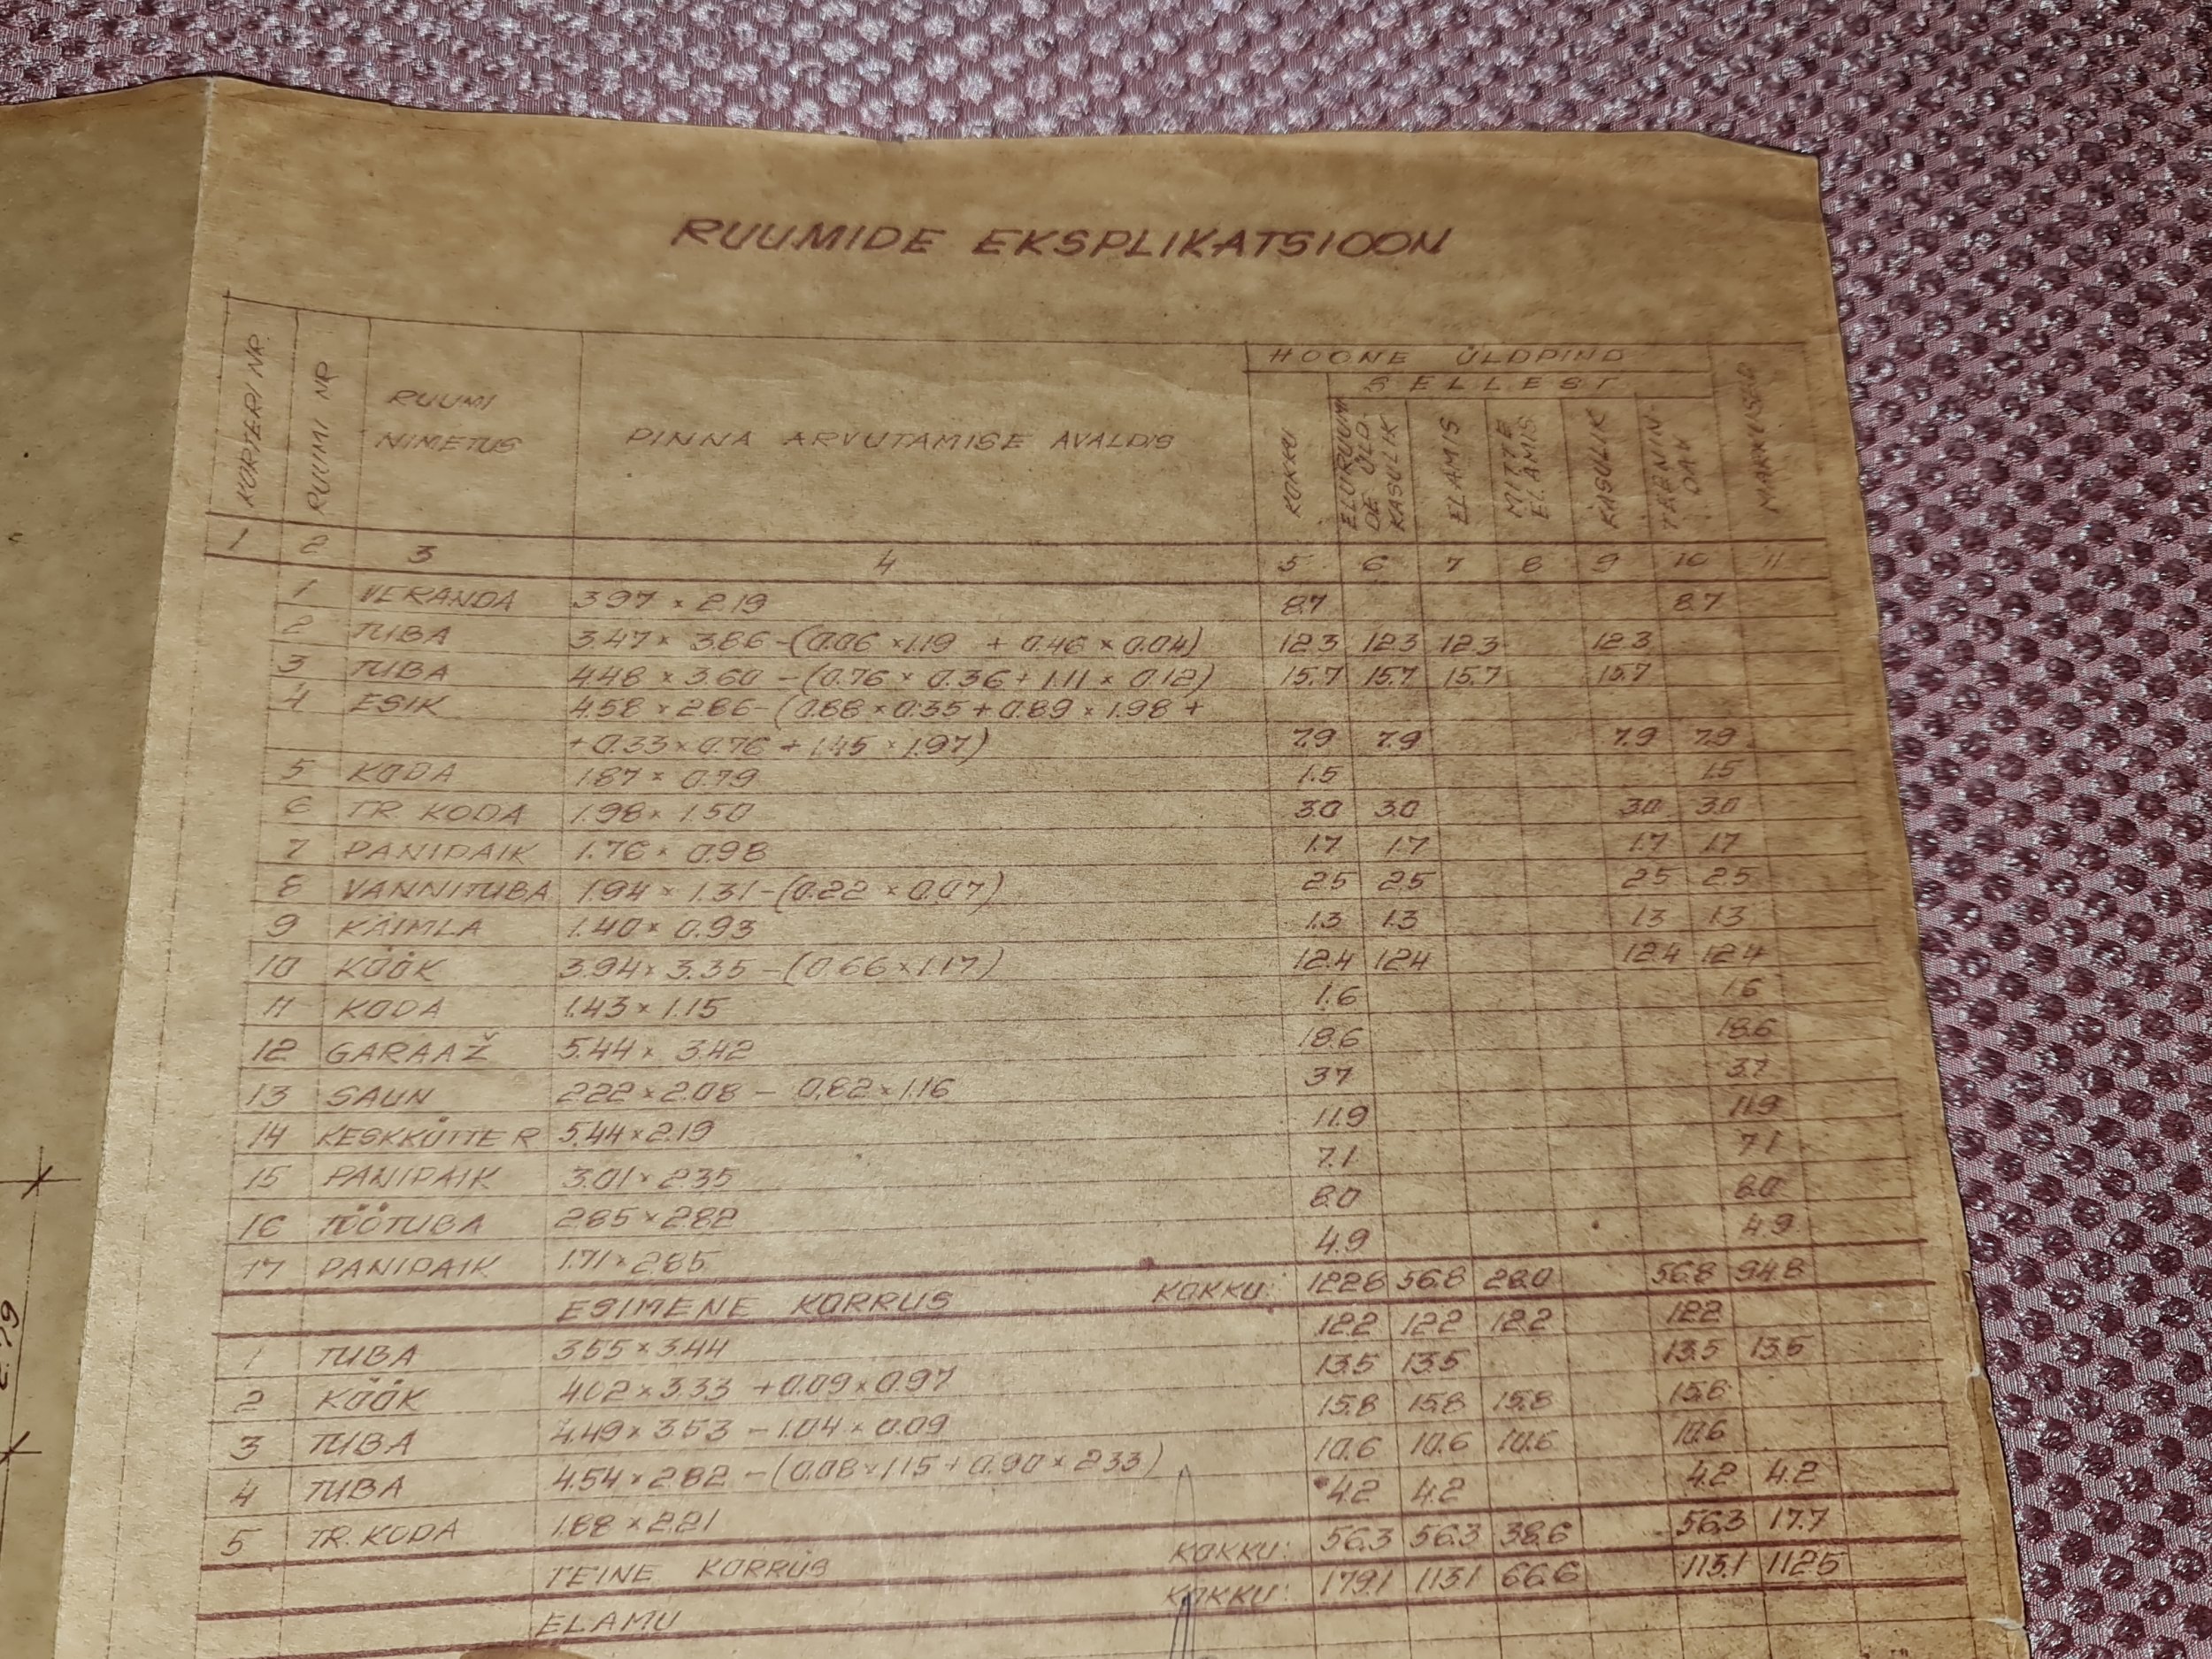 RUUMIDE EKSPLIKATSIOON
KORTERI NR. RUUMI NR RUUMI NIMETUS PINNA ARVUTAMISE AVALDIS HOONE ÜLDPIND MÄRKUSED
SELLEST
KOKKU ELURUUMIDE ÜLD. KASULIK ELAMIS MITTE ELAMIS KASULIK TEENINDAV
1 2 3 4 5 6 7 8 9 10 11
1 VERANDA 3.97 × 2.19 8.7 8.7
2 TUBA 3.47 × 3.86 - (0.06 × 1.19 + 0.46 × 0.04) 12.3 12.3 12.3 12.3
3 TUBA 4.48 × 3.60 - (0.76 × 0.36 + 1.11 × 0.12) 15.7 15.7 15.7 15.7
4 ESIK 4.58 × 2.86 - (0.88 × 0.35 + 0.89 × 1.98 +
+ 0.33 × 0.76 + 1.45 × 1.97) 7.9 7.9 7.9 7.9
5 KODA 1.87 × 0.79 1.5 1.5
6 TR. KODA 1.98 × 1.50 3.0 3.0 3.0 3.0
7 PANIPAIK 1.76 × 0.98 1.7 1.7 1.7 1.7
8 VANNITUBA 1.94 × 1.31 - (0.22 × 0.07) 2.5 2.5 2.5 2.5
9 KÄIMLA 1.40 × 0.93 1.3 1.3 1.3 1.3
10 KÖÖK 3.94 × 3.35 - (0.66 × 1.17) 12.4 12.4 12.4 12.4
11 KODA 1.43 × 1.15 1.6 1.6
12 GARAAŽ 5.44 × 3.42 18.6 18.6
13 SAUN 2.22 × 2.08 - 0.82 × 1.16 3.7 3.7
14 KESKKÜTTE R 5.44 × 2.19 11.9 11.9
15 PANIPAIK 3.01 × 2.35 7.1 7.1
16 TÖÖTUBA 2.85 × 2.82 8.0 8.0
17 PANIPAIK 1.71 × 2.85 4.9 4.9
ESIMENE KORRUS KOKKU: 122.8 56.8 28.0 56.8 94.8
1 TUBA 3.55 × 3.44 12.2 12.2 12.2 12.2
2 KÖÖK 4.02 × 3.33 + 0.09 × 0.97 13.5 13.5 13.5 13.5
3 TUBA 4.49 × 3.53 - 1.04 × 0.09 15.8 15.8 15.8 15.8
4 TUBA 4.54 × 2.82 - (0.08 × 1.15 + 0.90 × 2.33) 10.6 10.6 10.6 10.6
5 TR. KODA 1.88 × 2.21 4.2 4.2 4.2 4.2
TEINE KORRUS KOKKU: 56.3 56.3 38.6 56.3 17.7
ELAMU KOKKU: 179.1 113.1 66.6 113.1 112.5